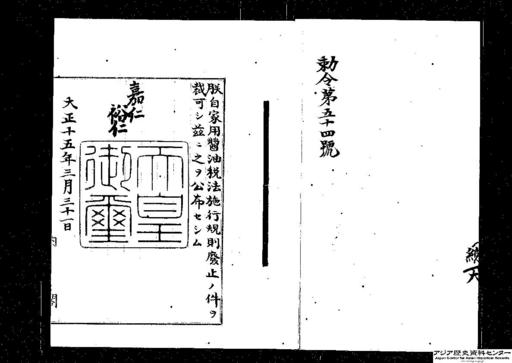 勅令第五十四號
朕自家用醬油税法施行規則廢止ノ件ヲ
裁可シ茲ニ之ヲ公布セシム
嘉仁
裕仁
天皇御璽
大正十五年三月三十一日
内閣
アジア歴史資料センター
Japan Center for Asian Historical Records